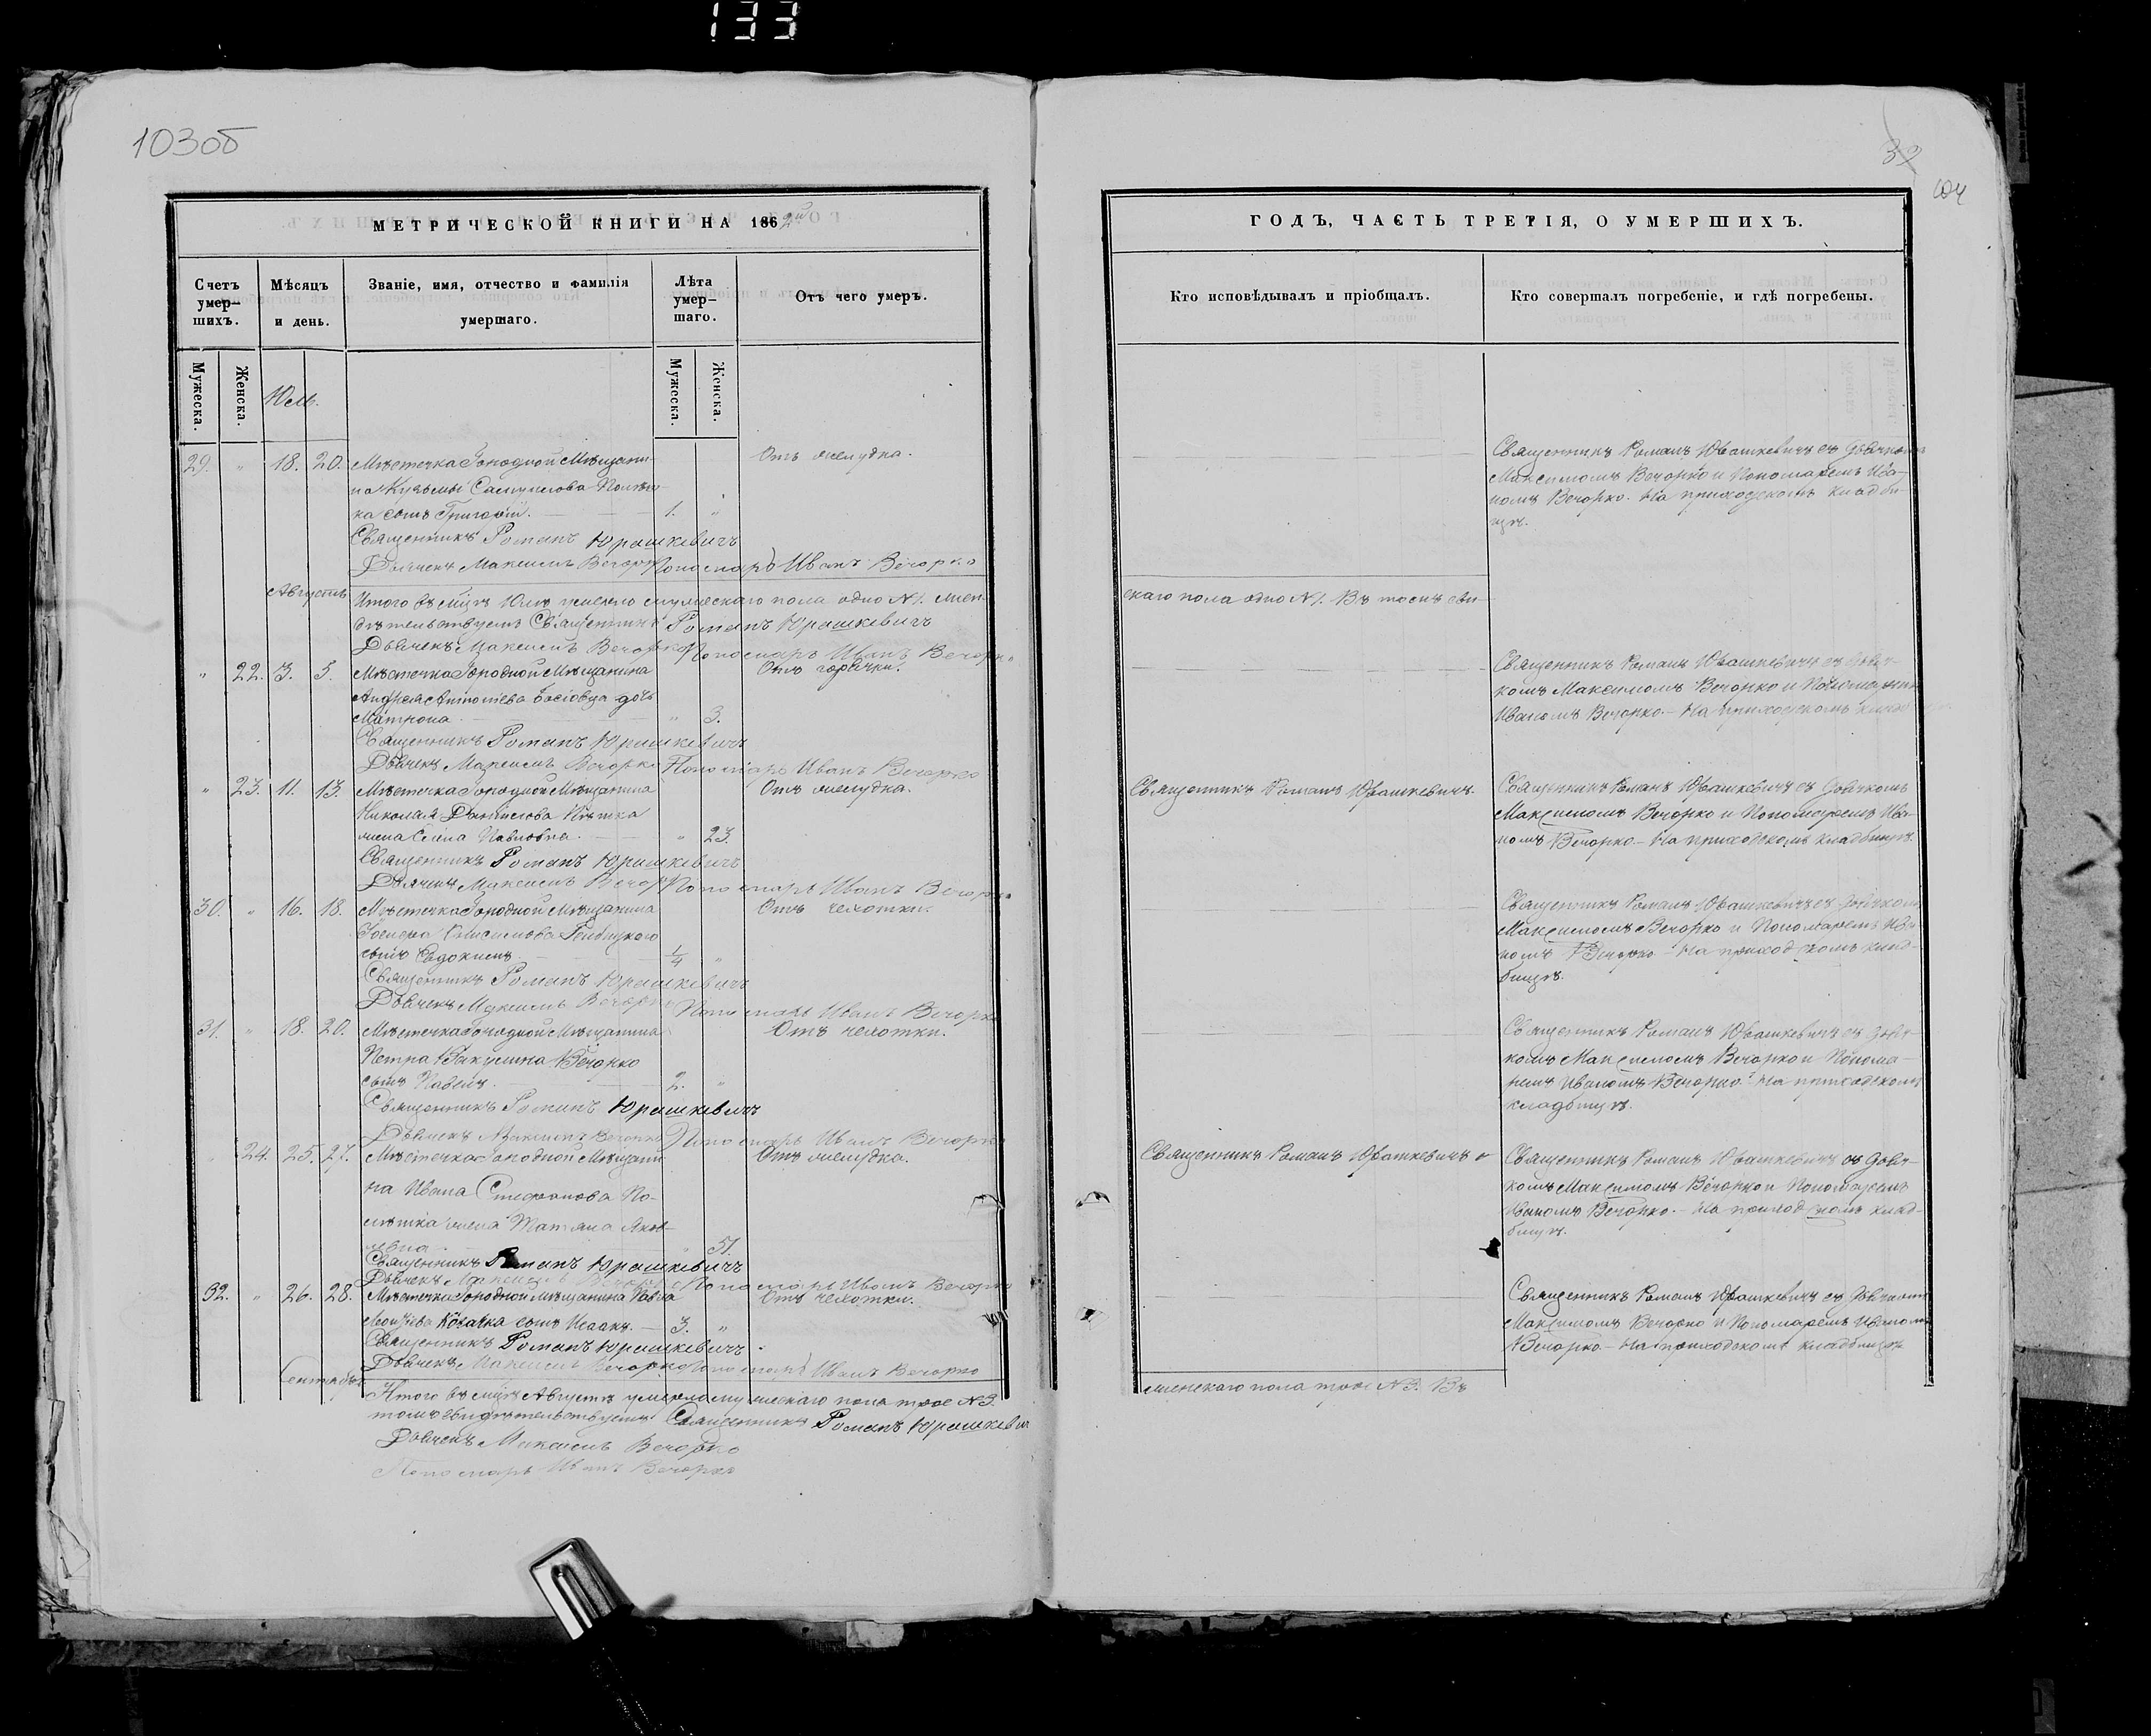 133
103об
МЕТРИЧЕСКОЙ КНИГИ НА 1862й
Счетъ умер-шихъ.
Мѣсяцъ и день.
Званіе, имя, отчество и фамилія умершаго.
Лѣта умер-шаго.
Отъ чего умеръ.
Мужеска.
Женска.
Мужеска.
Женска.
Юль.
29. " 18. 20. Мѣстечка Городной Мѣщани- Отъ желудка.
на Кузьмы Самуилова
ка сынъ Григорій. 1. "
Священникъ Романъ Юрашкевичъ
Дьячекъ Максимъ Вечорко Пономарь Иванъ Вечорко
Августъ
Итого въ мцѣ Юлѣ умерло мужескаго пола одно №1. жен-
дѣтельствуемъ Священникъ Романъ Юрашкевичъ
Дьячекъ Максимъ Вечорко Пономарь Иванъ Вечорко
" 22. 3. 5. Мѣстечка Городной Мѣщанина Отъ горячки.
Андрея Антоніева дочь
Матрона " 3.
Священникъ Романъ Юрашкевичъ
Дьячекъ Максимъ Вечорко Пономарь Иванъ Вечорко
" 23. 11. 13. Мѣстечка Городной Мѣщанина Отъ желудка.
Николая Даніилова
жена Павловна. " 23.
Священникъ Романъ Юрашкевичъ
Дьячекъ Максимъ Вечорко Пономарь Иванъ Вечорко
30. " 16. 18. Мѣстечка Городной Мѣщанина Отъ чехотки.
сынъ Евдокимъ 1/4 "
Священникъ Романъ Юрашкевичъ
Дьячекъ Максимъ Вечорко Пономарь Иванъ Вечорко
31. " 18. 20. Мѣстечка Городной Мѣщанина Отъ чехотки.
Петра Вечорко
сынъ 2. "
Священникъ Романъ Юрашкевичъ
Дьячекъ Максимъ Вечорко Пономарь Иванъ Вечорко
" 24. 25. 27. Мѣстечка Городной Мѣщани- Отъ желудка.
на Ивана Стефанова По-
лѣшка жена Татяна Яков-
левна " 51.
Священникъ Романъ Юрашкевичъ
Дьячекъ Максимъ Вечорко Пономарь Иванъ Вечорко
32. " 26. 28. Мѣстечка Городной Мѣщанина Павла Отъ чехотки.
сынъ Исаакъ. 3. "
Священникъ Романъ Юрашкевичъ
Дьячекъ Максимъ Вечорко Пономарь Иванъ Вечорко
Сентябрь
Итого въ мцѣ Августѣ умерло мужескаго пола трое №3.
томъ свидѣтельствуемъ Священникъ Романъ Юрашкевичъ
Дьячекъ Максимъ Вечорко
Пономарь Иванъ Вечорко
32
104
ГОДЪ, ЧАСТЬ ТРЕТІЯ, О УМЕРШИХЪ.
Кто исповѣдывалъ и пріобщалъ.
Кто совершалъ погребеніе, и гдѣ погребены.
Священникъ Романъ Юрашкевичъ съ Дьячкомъ
Максимомъ Вечорко и Пономаремъ Ива-
номъ Вечорко. На приходскомъ кладби-
щѣ.
скаго пола одно №1. Въ томъ сви-
Священникъ Романъ Юрашкевичъ съ Дьяч-
комъ Максимомъ Вечорко и Пономаремъ
Иваномъ Вечорко. На приходскомъ
Священникъ Романъ Юрашкевичъ.
Священникъ Романъ Юрашкевичъ съ Дьячкомъ
Максимомъ Вечорко и Пономаремъ Ива-
номъ Вечорко. На приходскомъ кладбищѣ.
Священникъ Романъ Юрашкевичъ съ Дьячкомъ
Максимомъ Вечорко и Пономаремъ Ива-
номъ Вечорко На приходскомъ клад-
бищѣ.
Священникъ Романъ Юрашкевичъ съ Дьяч-
комъ Максимомъ Вечорко и Понома-
ремъ Иваномъ Вечорко. На приходскомъ
кладбищѣ.
Священникъ Романъ Юрашкевичъ
Священникъ Романъ Юрашкевичъ съ Дьяч-
комъ Максимомъ Вечорко и Пономаремъ
Иваномъ Вечорко. На приходскомъ клад-
бищѣ.
Священникъ Романъ Юрашкевичъ съ Дьячкомъ
Максимомъ Вечорко и Пономаремъ Иваномъ
Вечорко. На приходскомъ кладбищѣ
женскаго пола трое №3. Въ